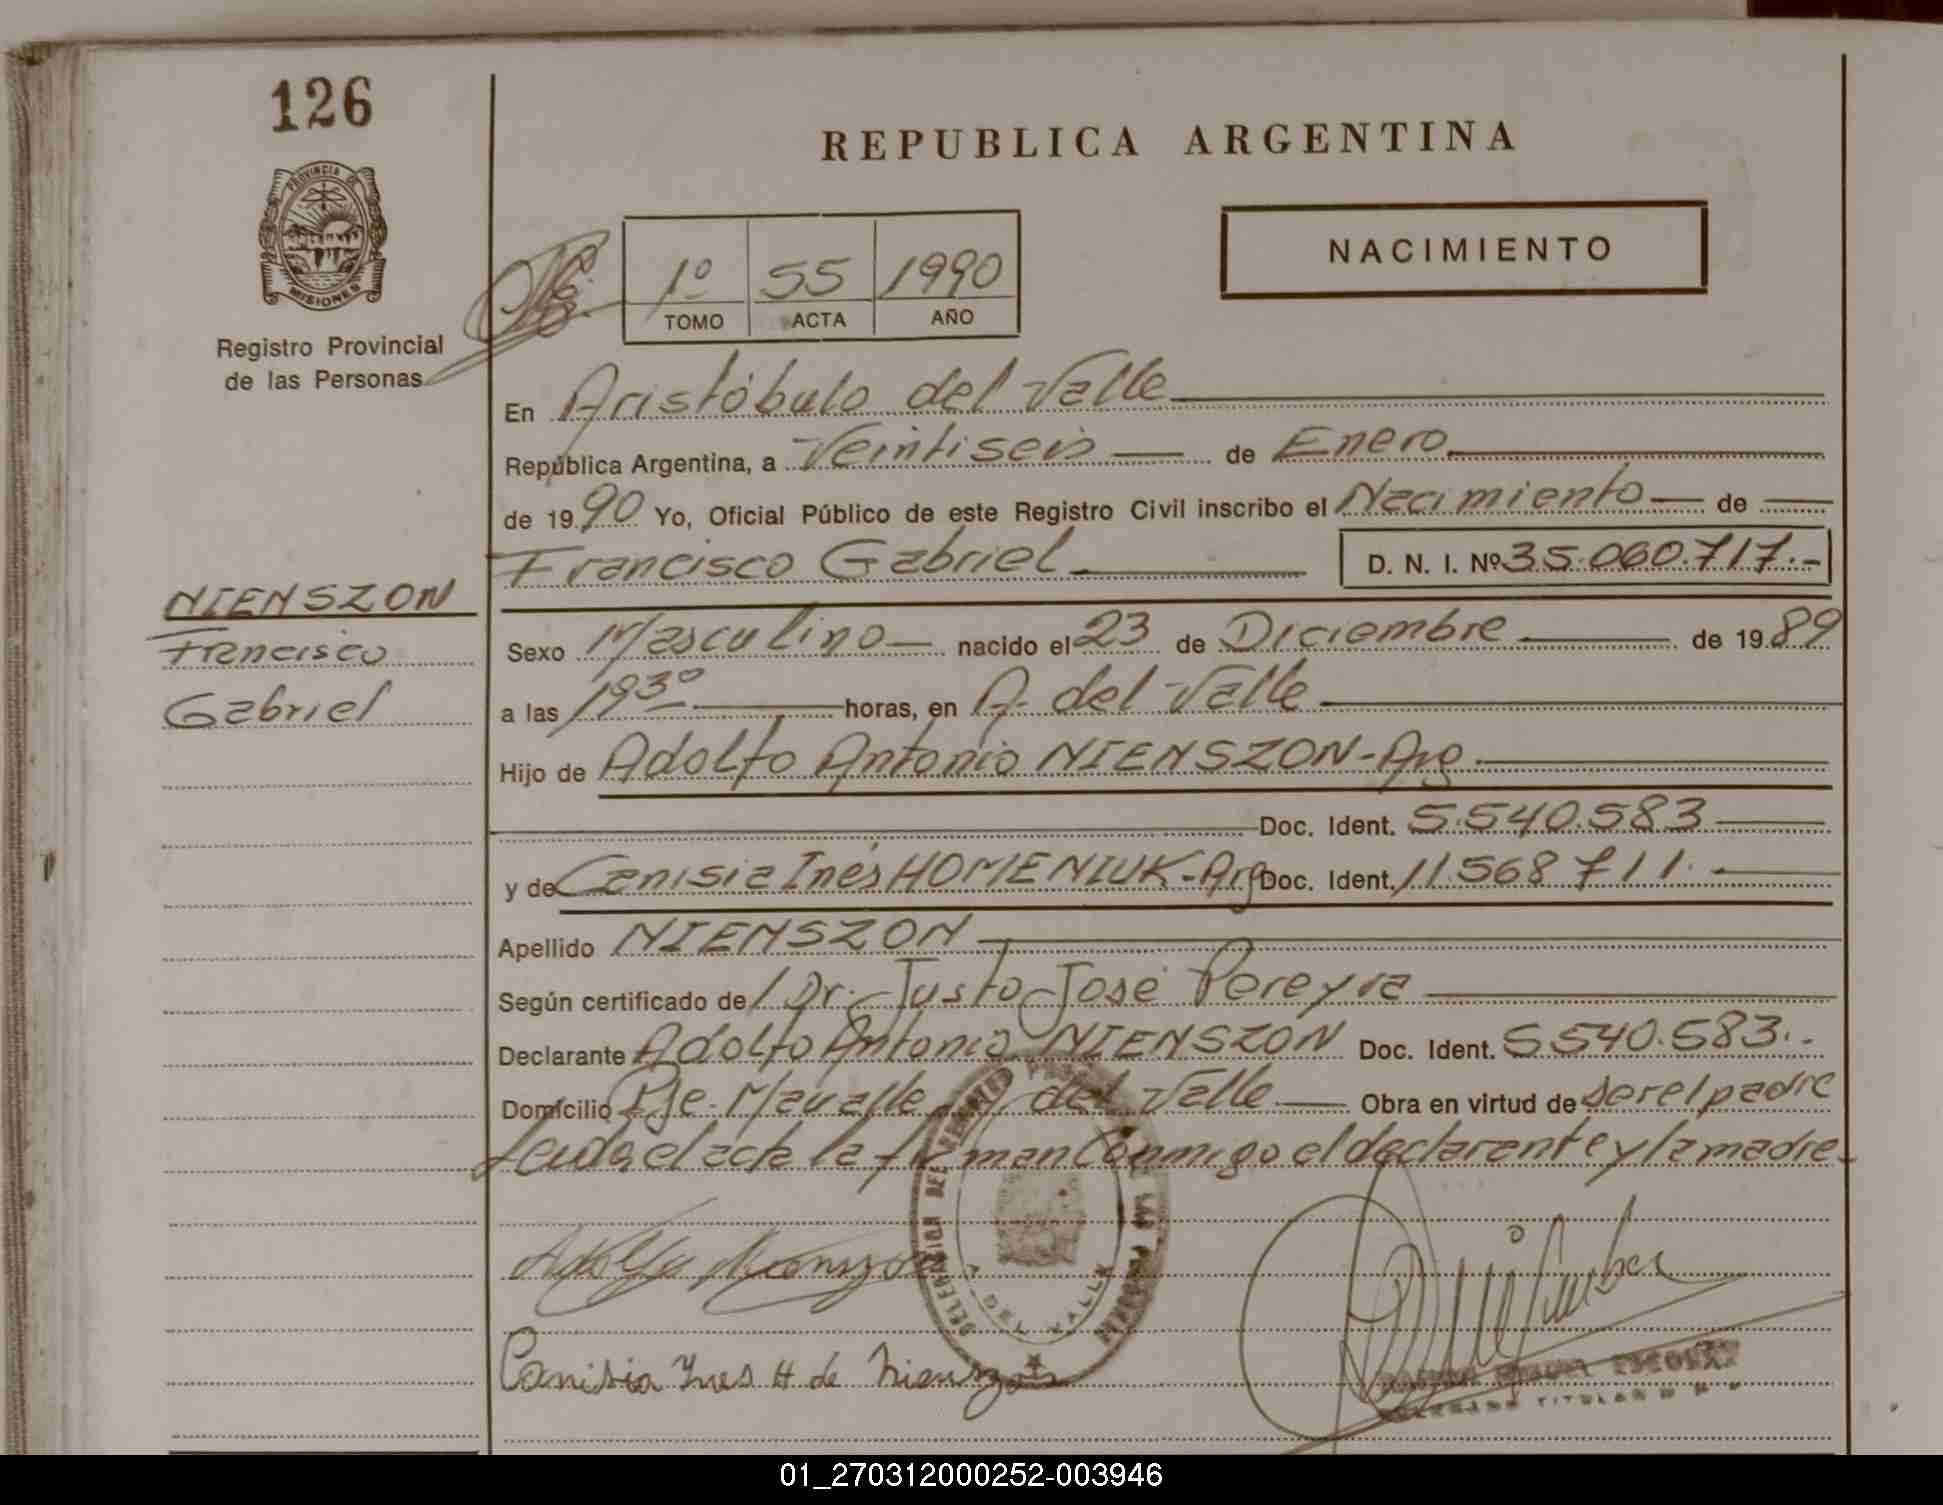 126
REPUBLICA ARGENTINA
PROVINCIA DE
MISIONES
Registro Provincial
de las Personas
1º 55 1990
TOMO ACTA AÑO
NACIMIENTO
En Aristóbulo del Valle
República Argentina, a Veintiseis de Enero
de 1990 Yo, Oficial Público de este Registro Civil inscribo el Nacimiento de
Francisco Gabriel D. N. I. Nº 35.060.717.-
NIENSZON
Francisco
Gabriel
Sexo Masculino nacido el 23 de Diciembre de 1989
a las 1930 horas, en A. del Valle
Hijo de Adolfo Antonio NIENSZON-Arg
Doc. Ident. 5.540.583
y de Canisia Inés HOMENIUK-Arg Doc. Ident. 11.568711.
Apellido NIENSZON
Según certificado de Dr. Justo José Pereyra
Declarante Adolfo Antonio NIENSZON Doc. Ident. 5.540.583.-
Domicilio Pje. Mavalle A. del Valle Obra en virtud de ser el padre
Leida el acta la firman Conmigo el declarante y la madre
DELEGACION DEL REGISTRO DE LAS PERSONAS
A. DEL VALLE
Adolfo Nienszon
Canisia Ines H de Nienszon
TITULAR
01_270312000252-003946